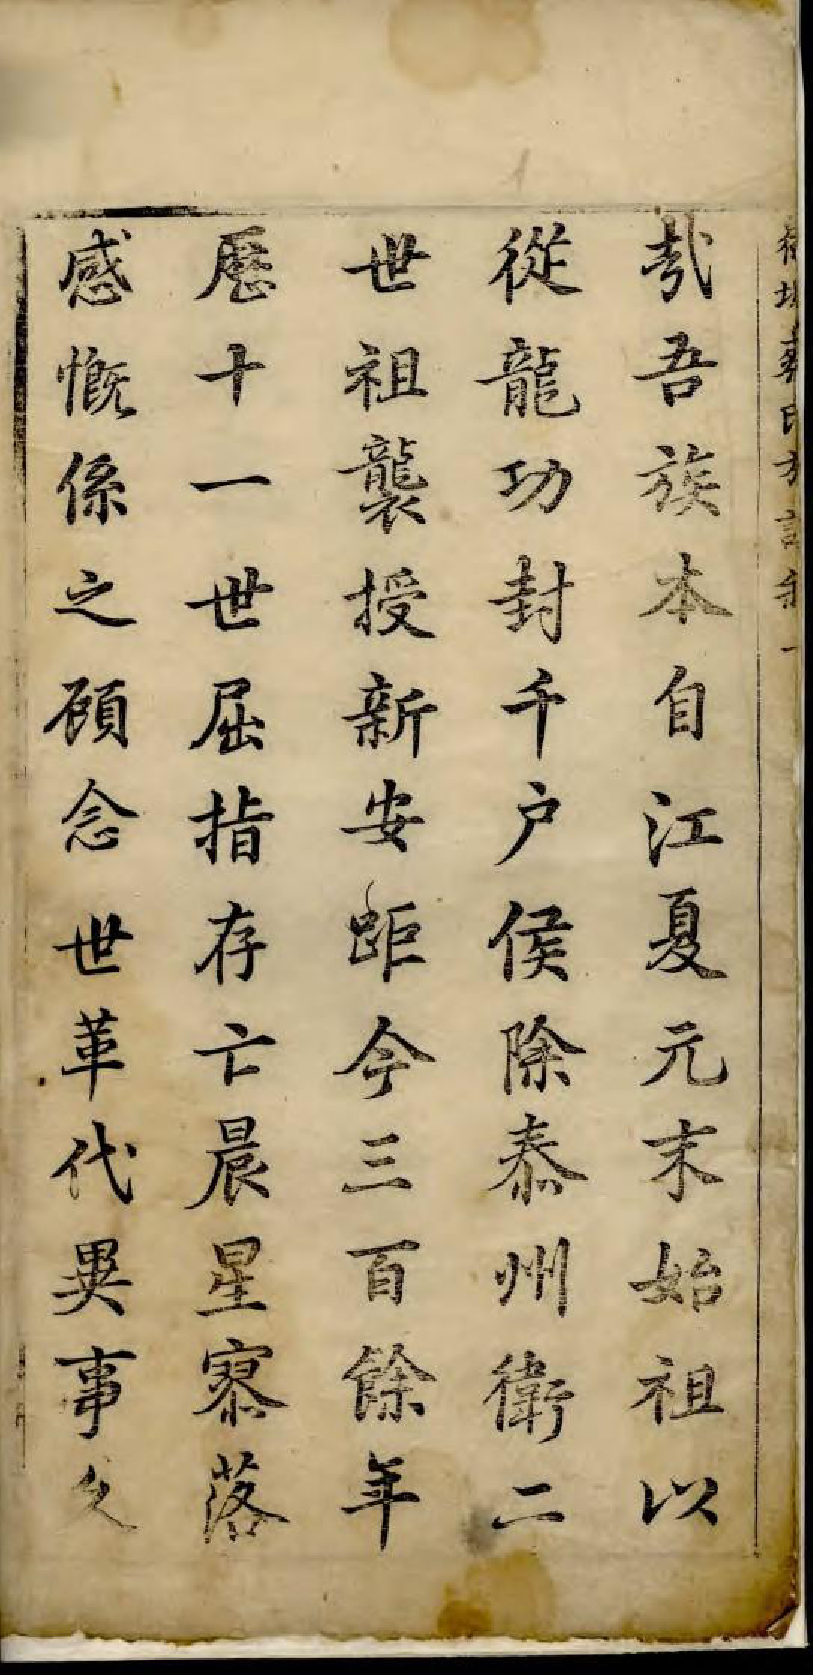 哉吾族本自江夏元末始祖以
從龍功封千户侯除泰州衛二
世祖襲授新安距今三百餘年
歷十一世屈指存亡晨星寥落
感慨係之顧念世革代異事久